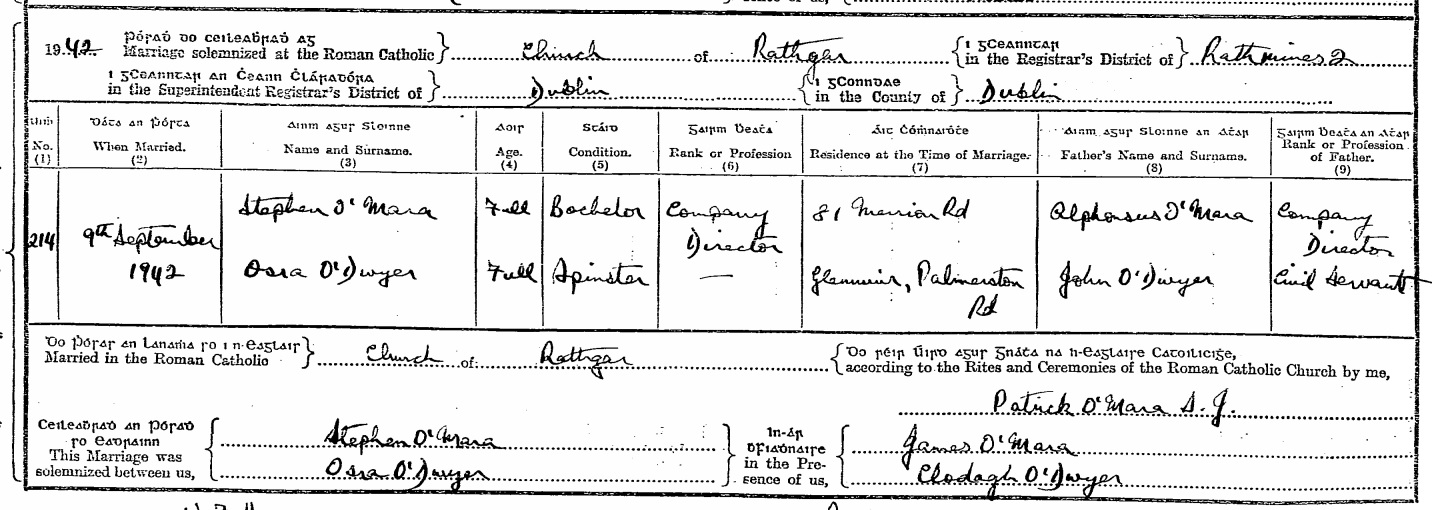 1942 Pórað do ceileabrað ag
Marriage solemnized at the Roman Catholic } Church of Rathgar { i gCeanntar
in the Registrar's District of } Rathmines 2
i gCeanntar an Ceann Cláraðóra
in the Superintendent Registrar's District of } Dublin { i gConndae
in the County of } Dublin
No. (1)
Dáta an Pórta When Married. (2)
Ainm agus Sloinne Name and Surname. (3)
Aois Age. (4)
Stáid Condition. (5)
Gairm Beata Rank or Profession (6)
Áit Cómnaiḋte Residence at the Time of Marriage. (7)
Ainm agus Sloinne an Atar Father's Name and Surname. (8)
Gairm Beata an Atar Rank or Profession of Father. (9)
214 9th September 1942
Stephen O'Mara Full Bachelor Company Director 81 Merrion Rd Alphonsus O'Mara Company Director
Ossa O'Dwyer Full Spinster — Palmerston Rd John O'Dwyer Civil Servant
Do Pórad an Lanama so i n-Eaglais
Married in the Roman Catholic } Church of Rathgar { Do réir Uird agus Gnáta na h-Eaglaise Catoilicige,
according to the Rites and Ceremonies of the Roman Catholic Church by me,
Patrick O'Mara S.J.
Ceileabrað an Pórað so Eadrainn
This Marriage was solemnized between us, { Stephen O'Mara
Ossa O'Dwyer
In-Ár bFiadnaire
in the Presence of us, { James O'Mara
Clodagh O'Dwyer